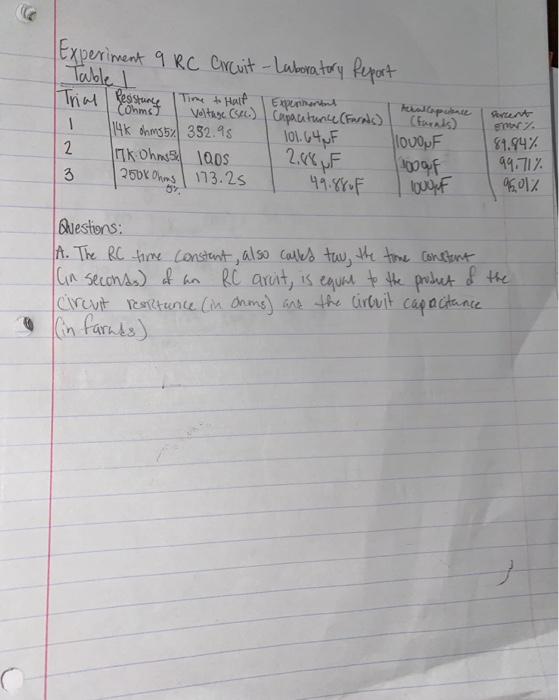 Experiment 9 RC Circuit - Laboratory Report
Table 1
Trial Resistance (Ohms) Time to Half Voltage (sec.) Experimental Capacitance (Farads) Actual Capacitance (Farads) Percent error %
1 14K ohms 5% 352.9s 101.64μF 1000μF 89.84%
2 17K Ohms 5% 100s 2.88μF 1000μF 99.71%
3 250K Ohms 5% 173.2s 49.88μF 1000μF 95.01%
Questions:
A. The RC time constant, also called tau, the time constant
(in seconds) of an RC circuit, is equal to the product of the
circuit resistance (in ohms) and the circuit capacitance
(in farads)